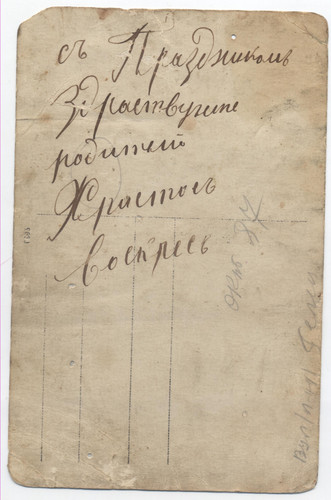 съ Праздником
Здраствуите
родители
Христосъ
Воскресъ